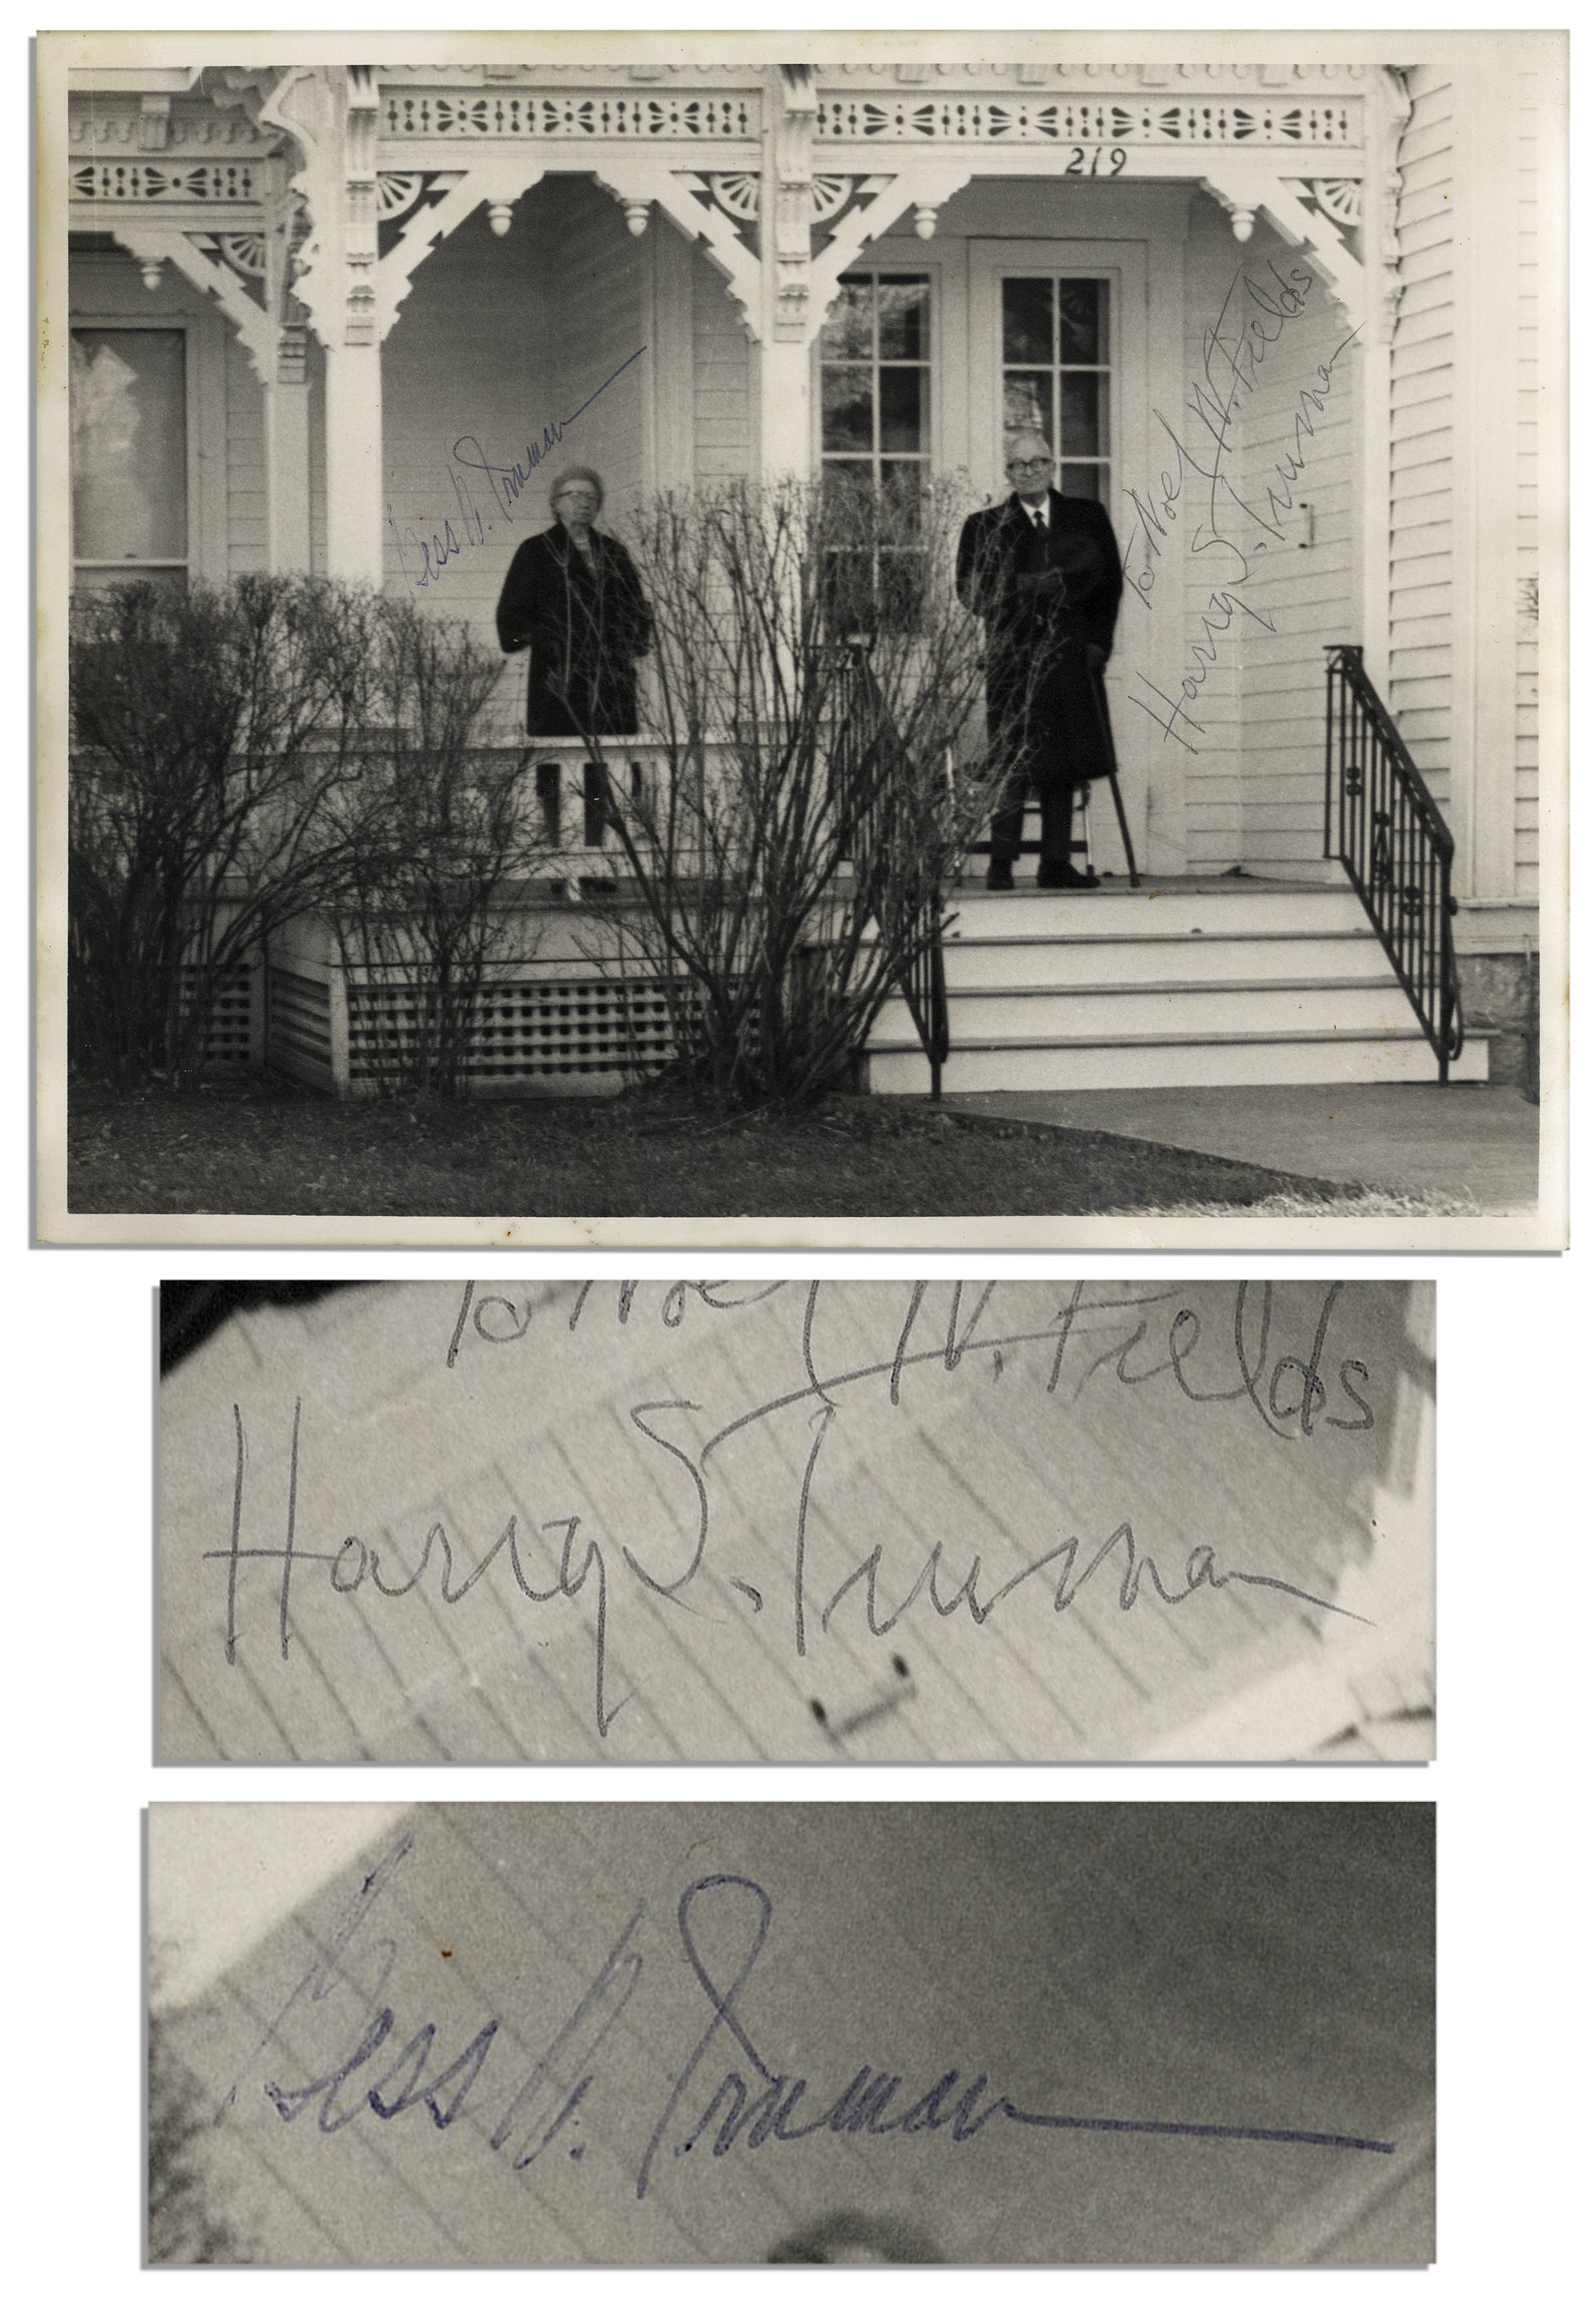 219
Bess W. Truman
To Noel W. Fields
Harry S. Truman
To Noel W. Fields
Harry S. Truman
Bess W. Truman